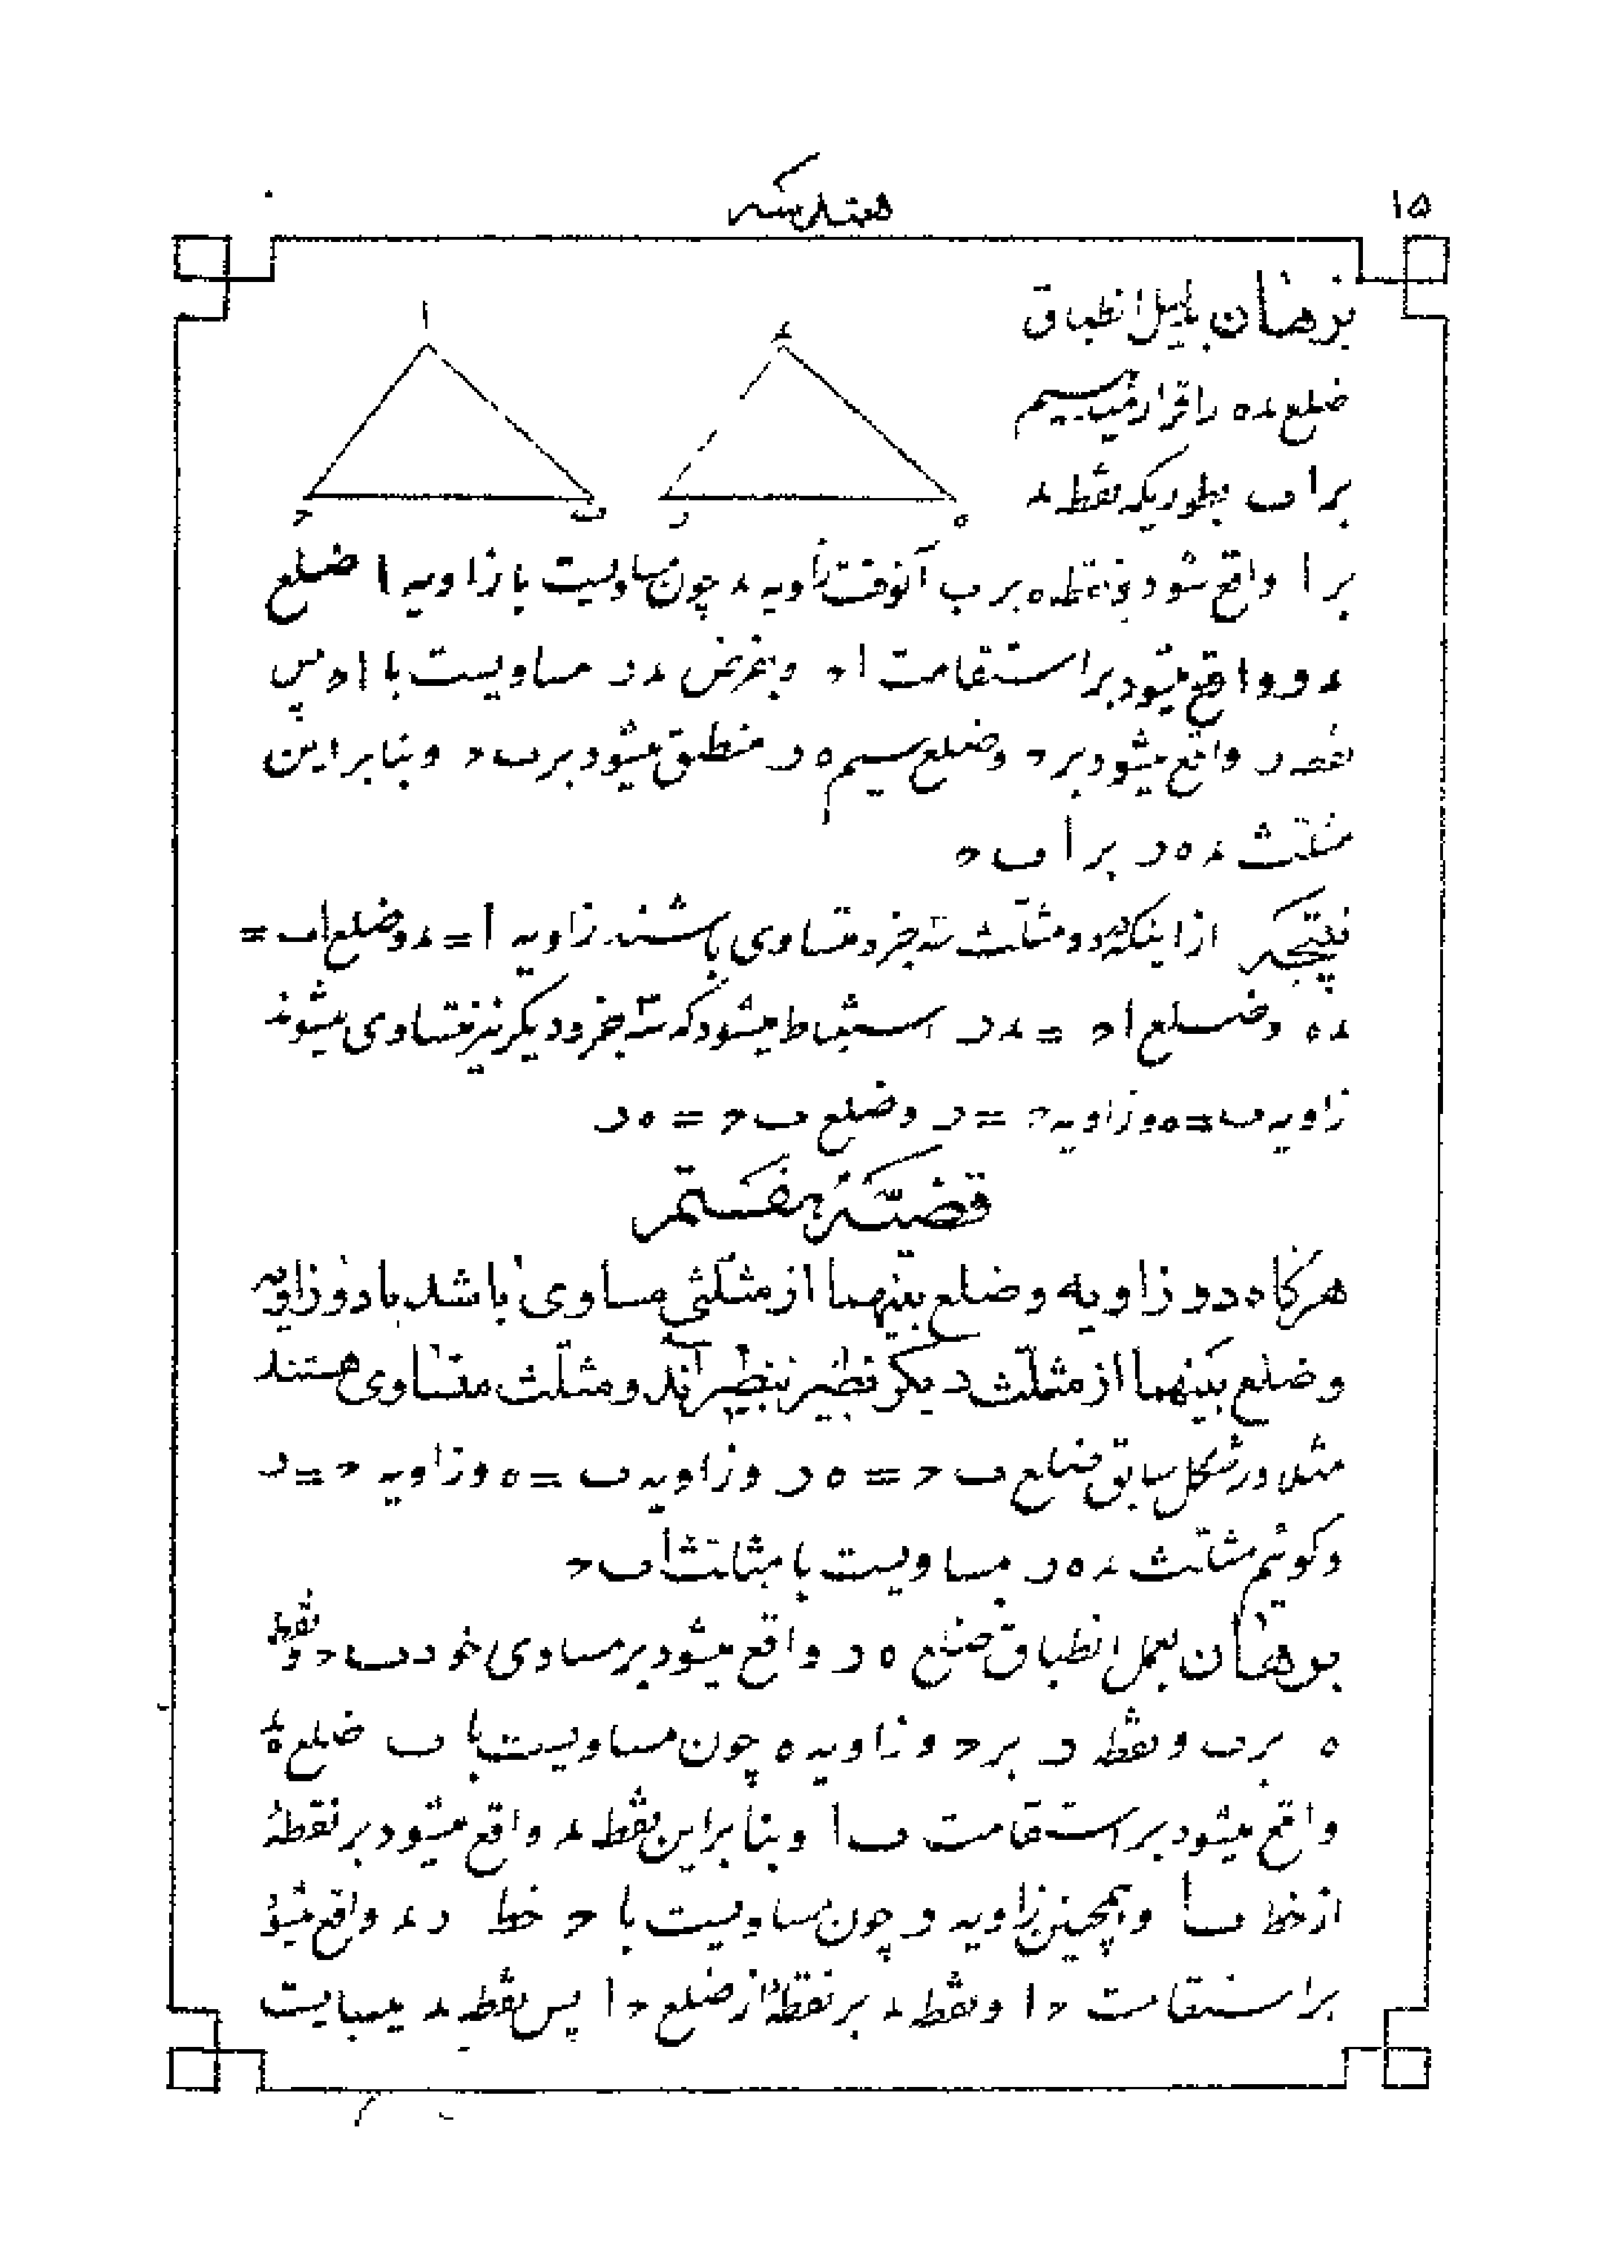 ۱۵
هندسه
برهان بدلیل انطباق
ضلع ء ه را قرار میدهیم
بر ا ب بطوریکه نقطه ء
بر ا واقع شود و نقطه ه بر ب آنوقت زاویه ء چون مساویست با زاویه ا ضلع
ء و واقع میشود بر استقامت ا ح و بفرض ء ر مساویست با ا ح پس
نقطه ر واقع میشود بر ح و ضلع سیم ه ر منطبق میشود بر ب ح و بنابراین
مثلث ء ه ر بر ا ب ح
نتیجه از اینکه در دو مثلث سه جزء متساوی باشند زاویه ا = ء و ضلع ا ب =
ء ه و ضلع ا ح = ء ر استنباط میشود که سه جزء دیگر نیز متساوی میشوند
زاویه ب = ه و زاویه ح = ر و ضلع ب ح = ه ر
قضیّه هفتم
هرگاه دو زاویه و ضلع بینهما از مثلثی مساوی باشد با دو زاویه
و ضلع بینهما از مثلث دیگر نظیر بنظیر آند و مثلث متساوی هستند
مثلا در شکل سابق ضلع ب ح = ه ر و زاویه ب = ه و زاویه ح = ر
و گوئیم مثلث ء ه ر مساویست با مثلث ا ب ح
برهان بعمل انطباق ضلع ه ر واقع میشود بر مساوی خود ب ح و نقطه
ه بر ب و نقطه ر بر ح و زاویه ه چون مساویست با ب ضلع ه ء
واقع میشود بر استقامت ب ا و بنابراین نقطه ء واقع میشود بر نقطهٔ
از خط ب ا و همچنین زاویه ر چون مساویست با ح خط ر ء واقع میشود
بر استقامت ح ا و نقطه ء بر نقطهٔ از ضلع ح ا پس نقطه ء میبایست
ا
ح
ب
ء
ر
ه